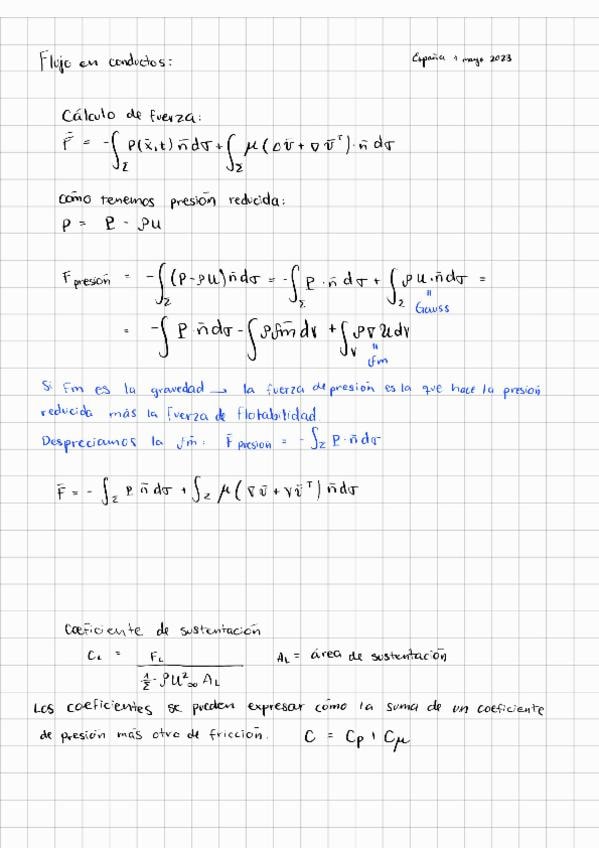 Flujo en conductos:
España 1 mayo 2023
Cálculo de fuerza:
F̄ = -∫_Σ P(x̄,t) n̄ dσ + ∫_Σ μ(∇v̄ + ∇v̄ᵀ)·n̄ dσ
como tenemos presión reducida:
p = P - ρU
F presión = -∫_Σ (P-ρU) n̄ dσ = -∫_Σ P·n̄ dσ + ∫_Σ ρU·n̄ dσ =
" Gauss
= -∫ P·n̄ dσ - ∫ ρf̄m dV + ∫_V ρ∇U dV
" f̄m
Si fm es la gravedad → la fuerza de presión es la que hace la presión
reducida más la fuerza de flotabilidad
Despreciamos la f̄m: F̄ presion = -∫_Σ P·n̄ dσ
F̄ = -∫_Σ P n̄ dσ + ∫_Σ μ(∇v̄ + ∇v̄ᵀ) n̄ dσ
Coeficiente de sustentación
C_L = F_L / (1/2 · ρU²∞ A_L) A_L = área de sustentación
Los coeficientes se pueden expresar como la suma de un coeficiente
de presión más otro de fricción. C = Cp + Cμ